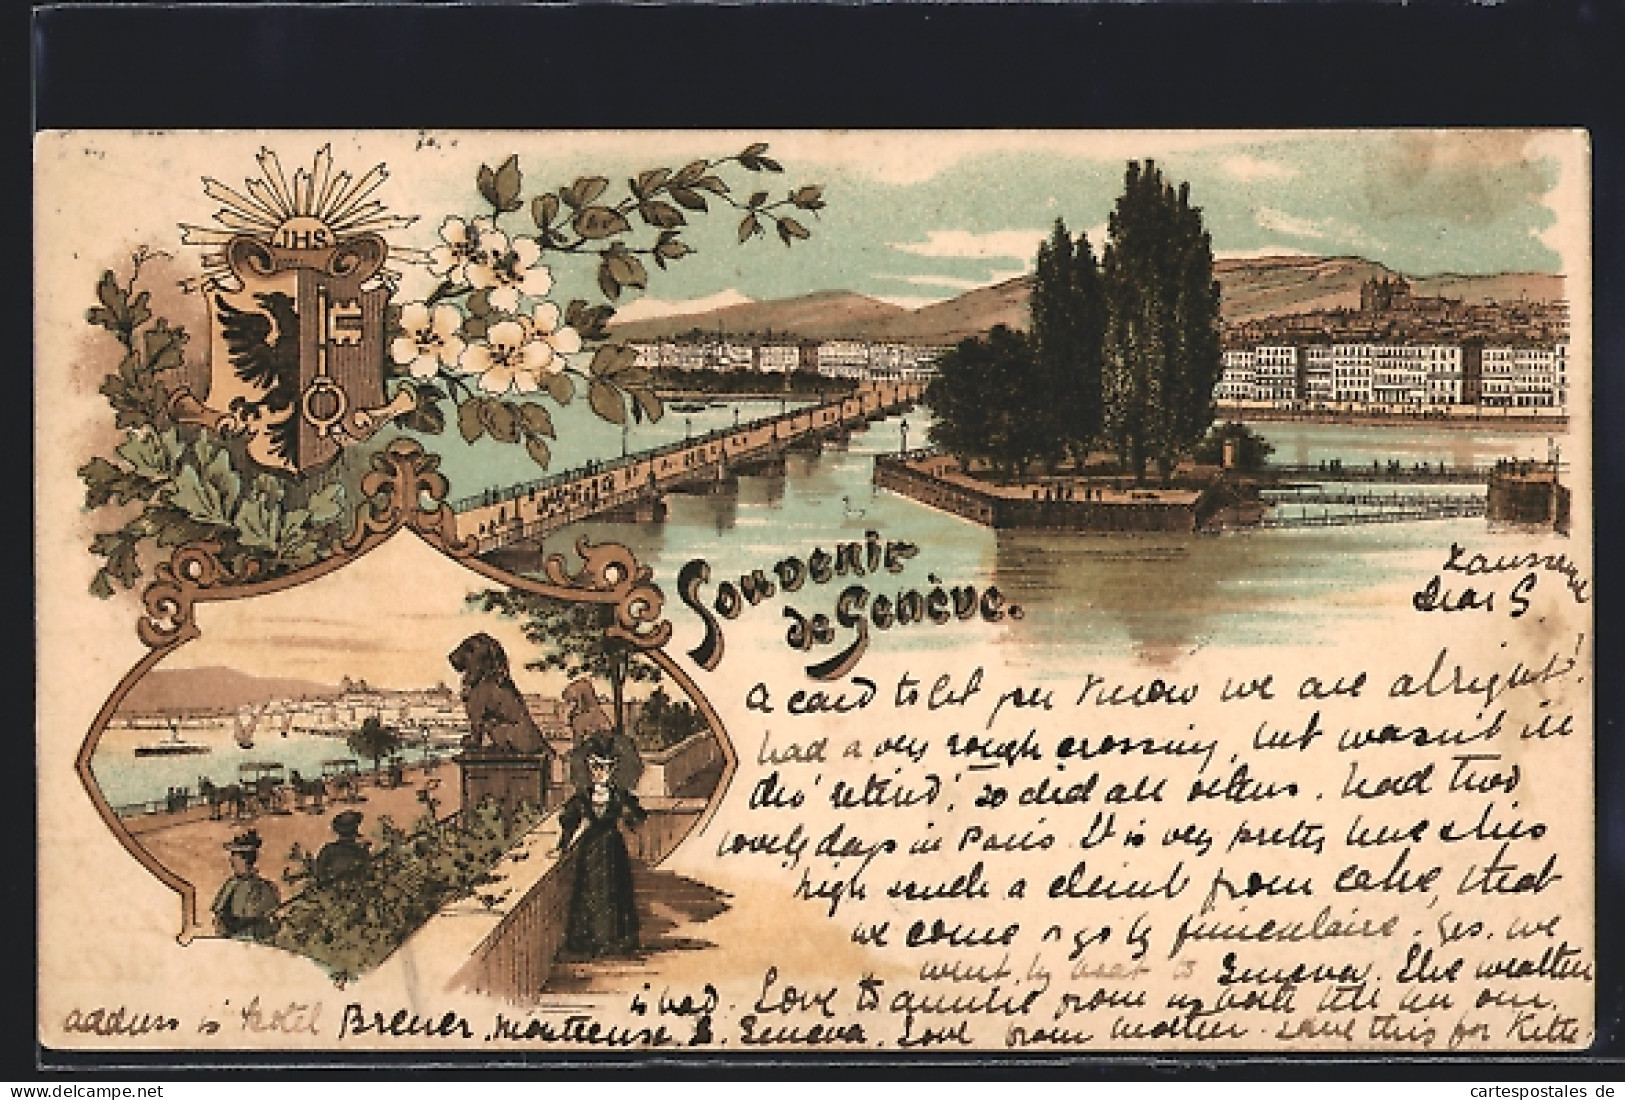 IHS
Souvenir
de Genève.
Lausanne
Dear G
A card to let you know we are alright!
had a very rough crossing, but wasn't ill
tho' retired, so did all others. had two
lovely days in Paris. It is very pretty here & lies
high such a climb from lake, that
we come & go by funiculaire. Yes. we
went by boat to Geneva. The weather
is bad. Love to Auntie from us both tell her our
address is Hotel Breuer, Montreux. L. Geneva. Love from Mother. save this for Kitte.
www.delcampe.net
cartespostales_de